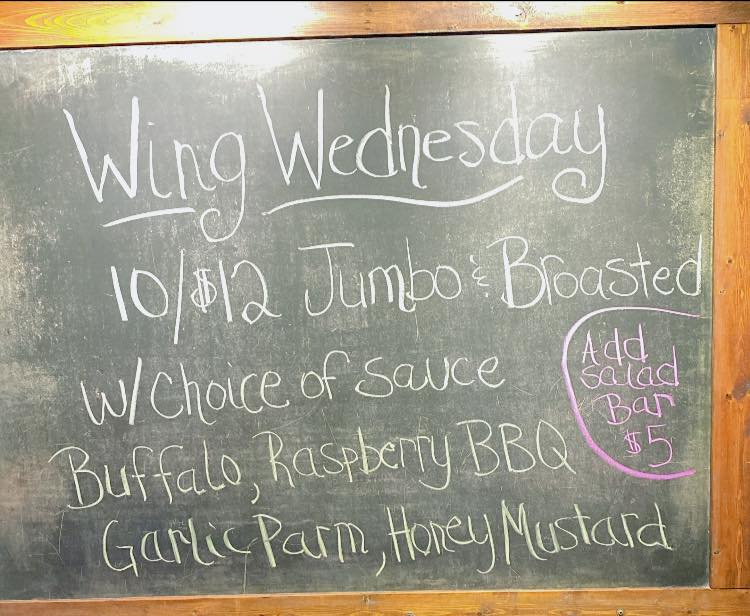 Wing Wednesday
10/$12 Jumbo & Broasted
w/Choice of sauce
Buffalo, Raspberry BBQ
Garlic Parm, Honey Mustard
Add
salad
Bar
$5